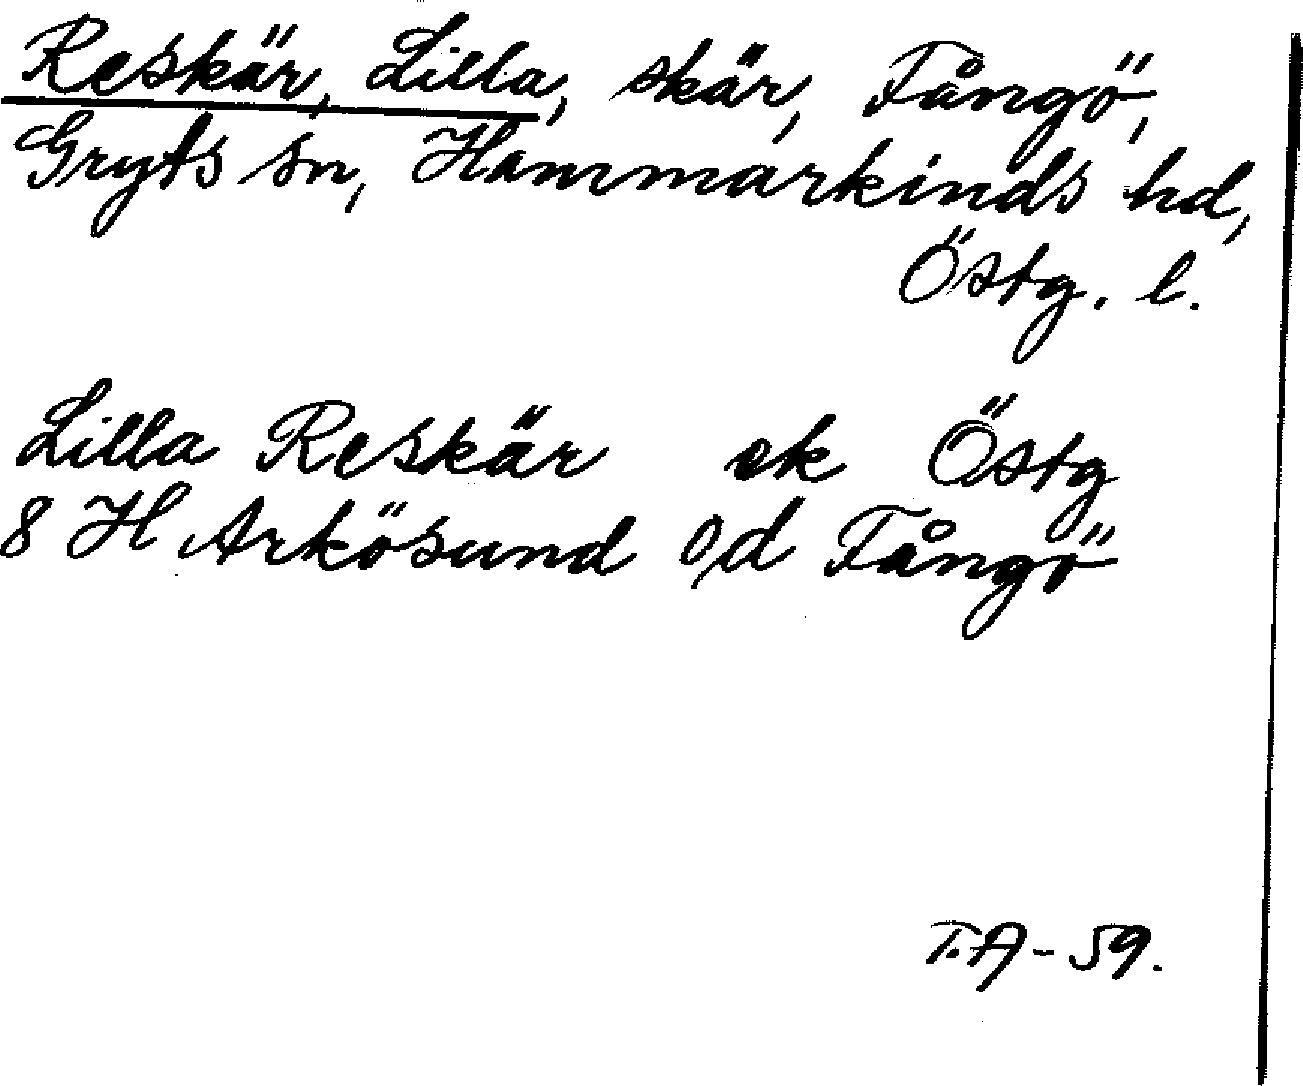 Reskär, Lilla, skär, Fångö,
Gryts sn, Hammarkinds hd,
Östg. l.
Lilla Reskär ek Östg
8 H Arkösund o/d Fångö
T.A-59.